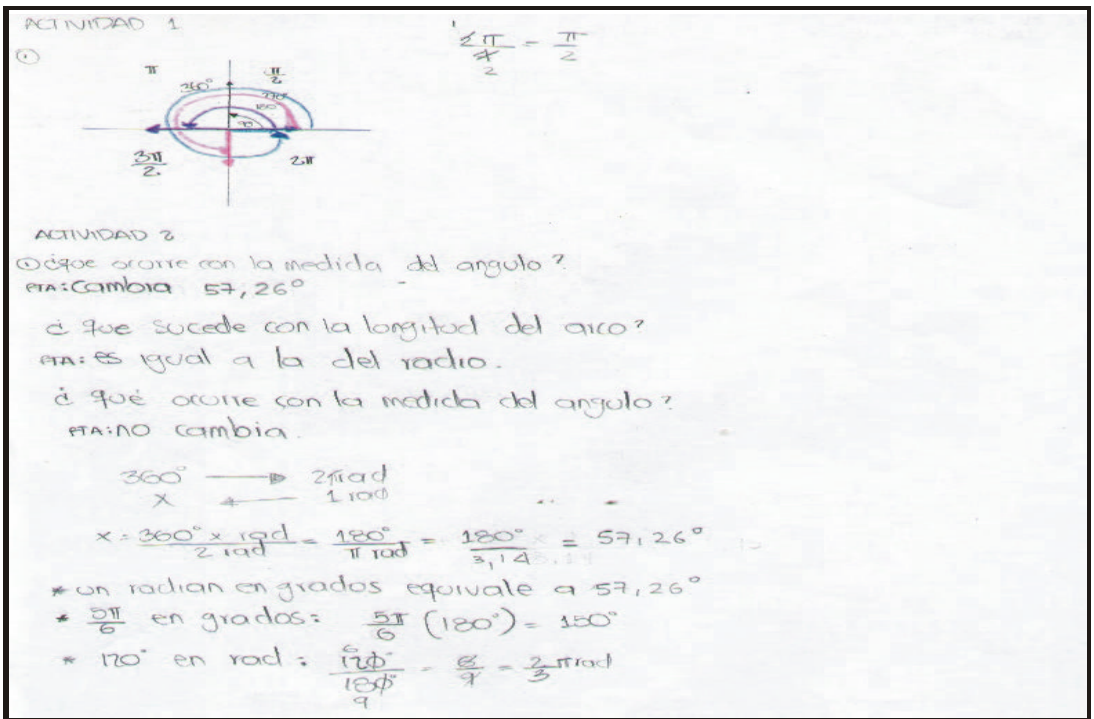 ACTIVIDAD 1
2π/4 = π/2
2
①
π
π/2
360°
270°
180°
90
3π/2
2π
ACTIVIDAD 2
① ¿que ocurre con la medida del angulo?
RTA: cambia 57,26°
¿ que sucede con la longitud del arco?
RTA: es igual a la del radio.
¿ qué ocurre con la medida del angulo?
RTA: no cambia.
360° → 2πrad
x ← 1 rad
x = 360° x rad / 2 rad = 180° / π rad = 180° / 3,14 = 57,26°
* un radian en grados equivale a 57,26°
* 5π/6 en grados: 5π/6 (180°) = 150°
* 120° en rad: 120°/180° = 6/9 = 2/3 πrad
9